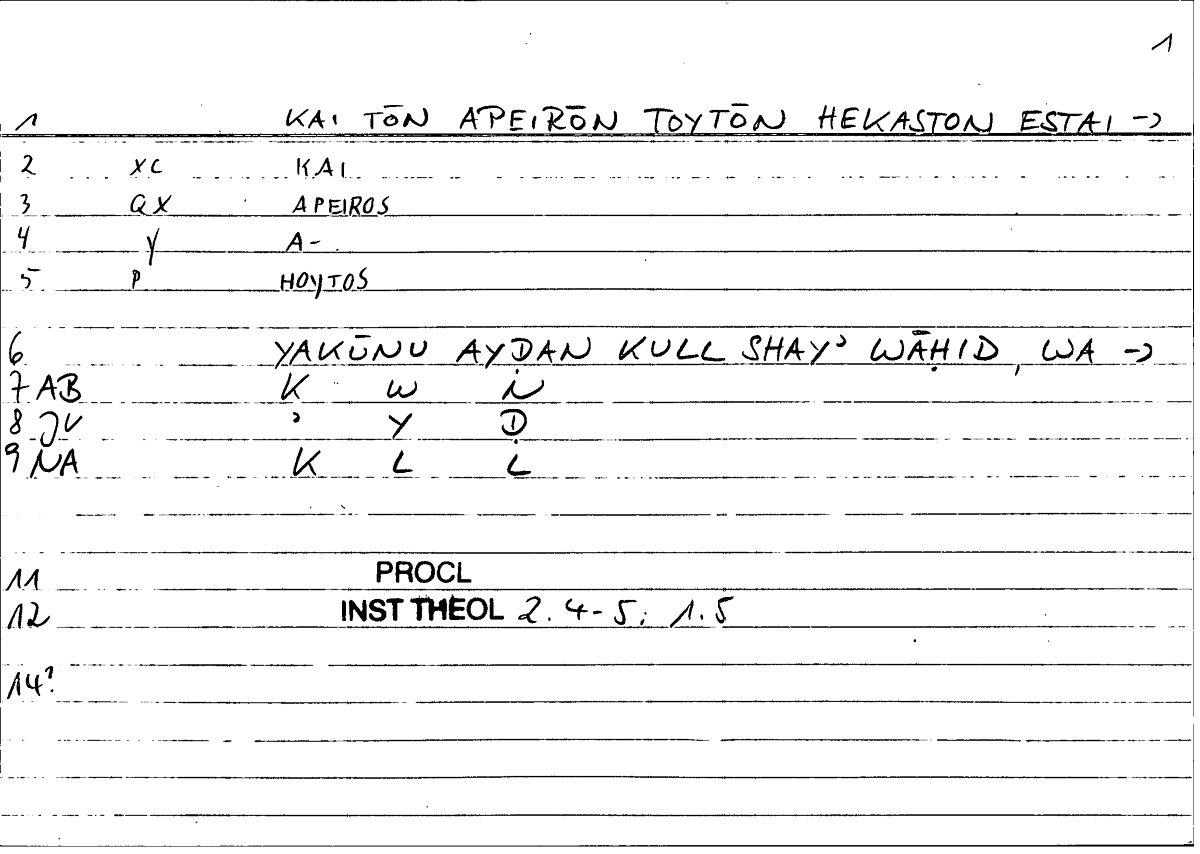 1
1 KAI TŌN APEIRŌN TOYTŌN HEKASTON ESTAI →
2 XC KAI
3 QX APEIROS
4 Y A-
5 P HOYTOS
6 YAKŪNU AYḌAN KULL SHAYʾ WĀḤID, WA →
7 AB K W N
8 JV ʾ Y Ḍ
9 NA K L L
11 PROCL
12 INST THEOL 2.4-5; 1.5
14?